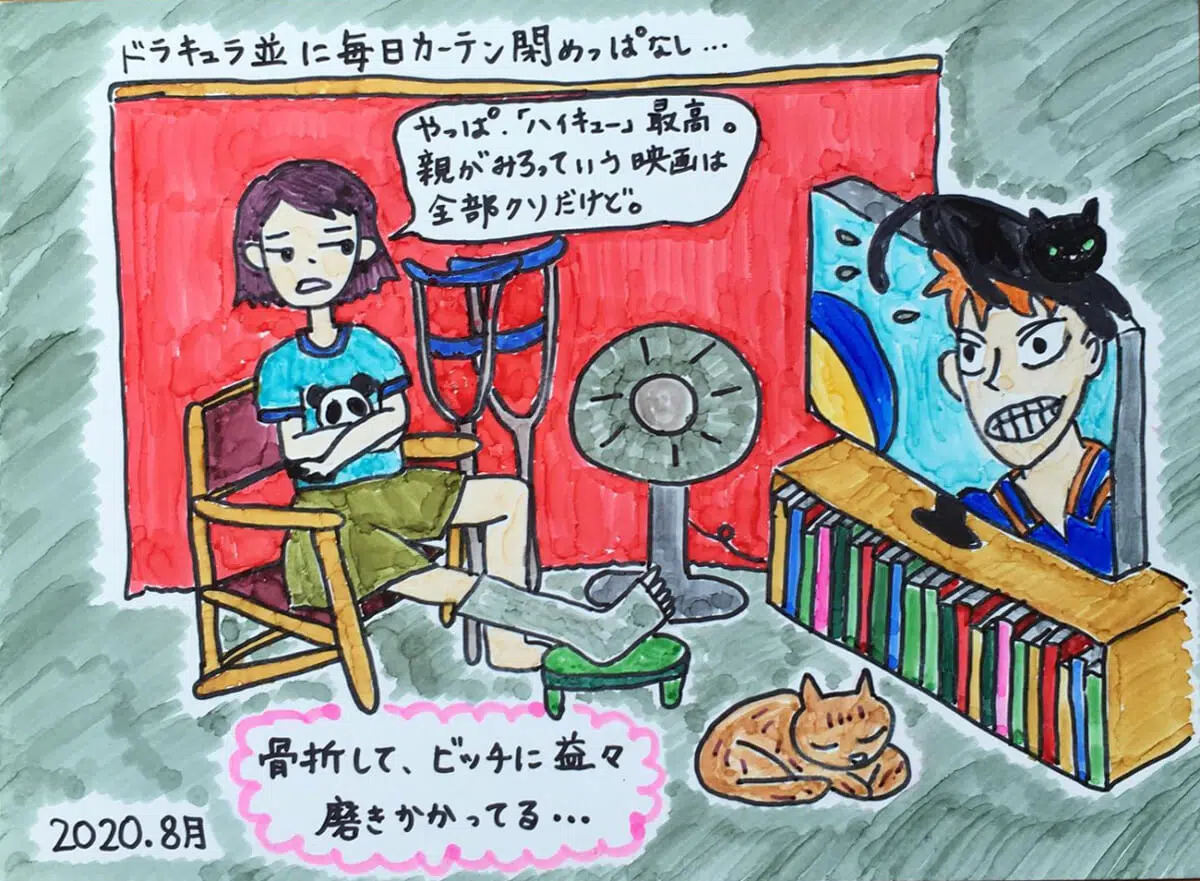 ドラキュラ並に毎日カーテン閉めっぱなし…
やっぱ、「ハイキュー」最高。
親がみろっていう映画は
全部クソだけど。
骨折して、ビッチに益々
磨きかかってる…
2020.8月